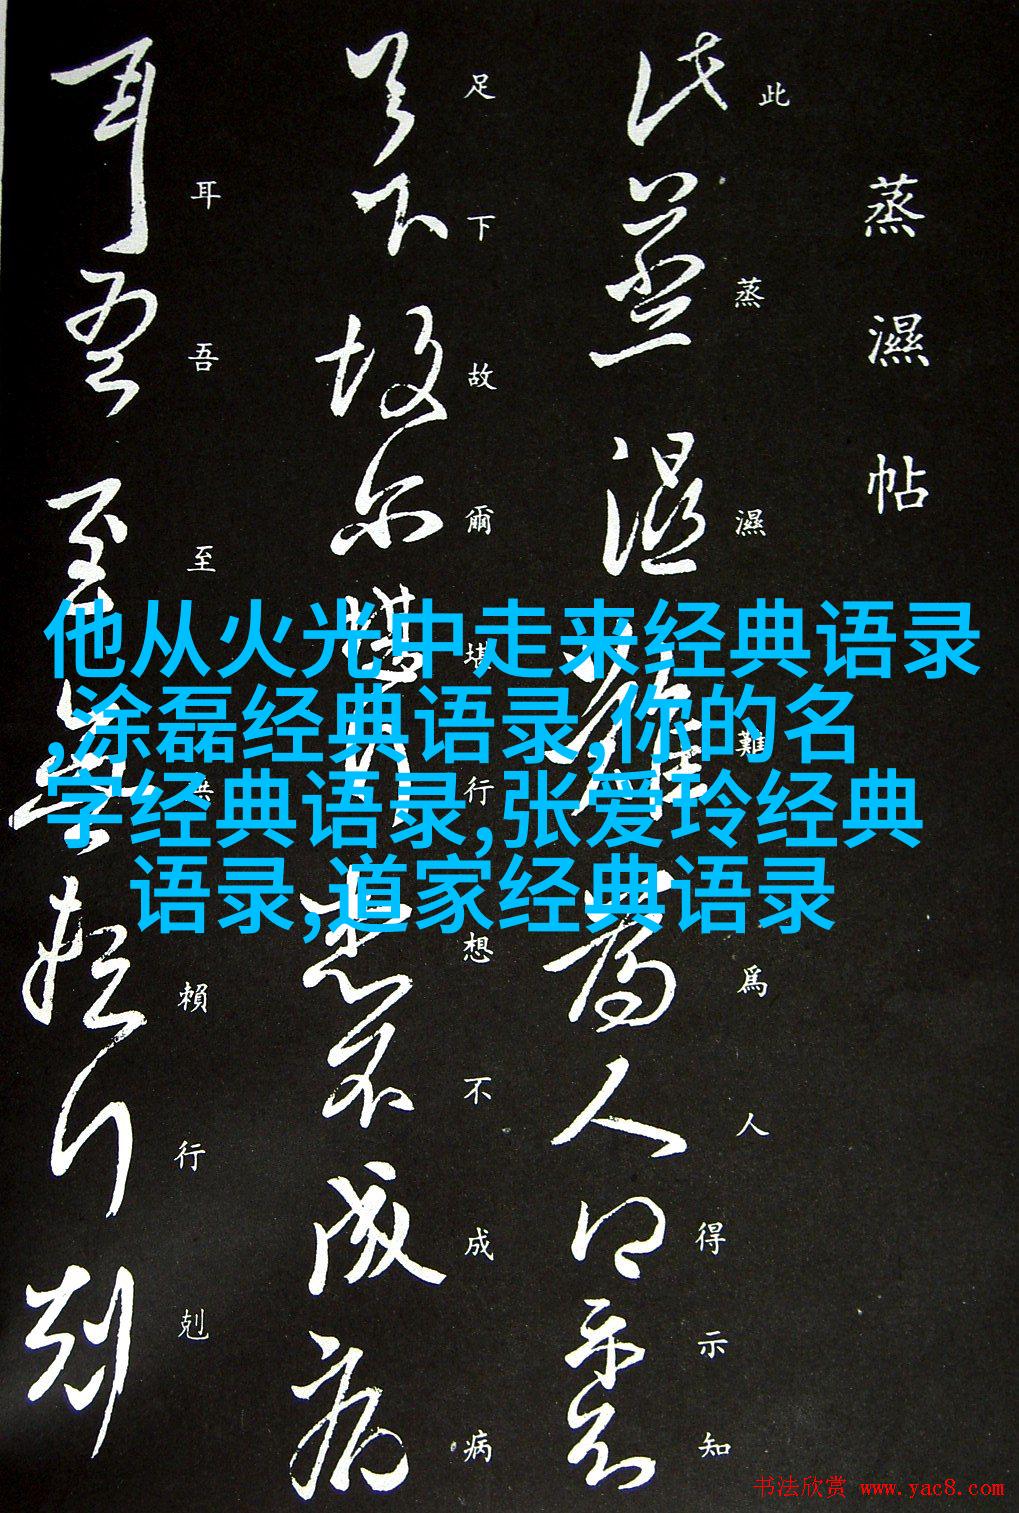 蒸濕帖
此蒸濕難爲人得示知
足下故爾堪行想不成病
耳吾至賴行剋
他从火光中走来经典语录
,涂磊经典语录,你的名
字经典语录,张爱玲经典
语录,道家经典语录
书法欣赏 www.yac8.com